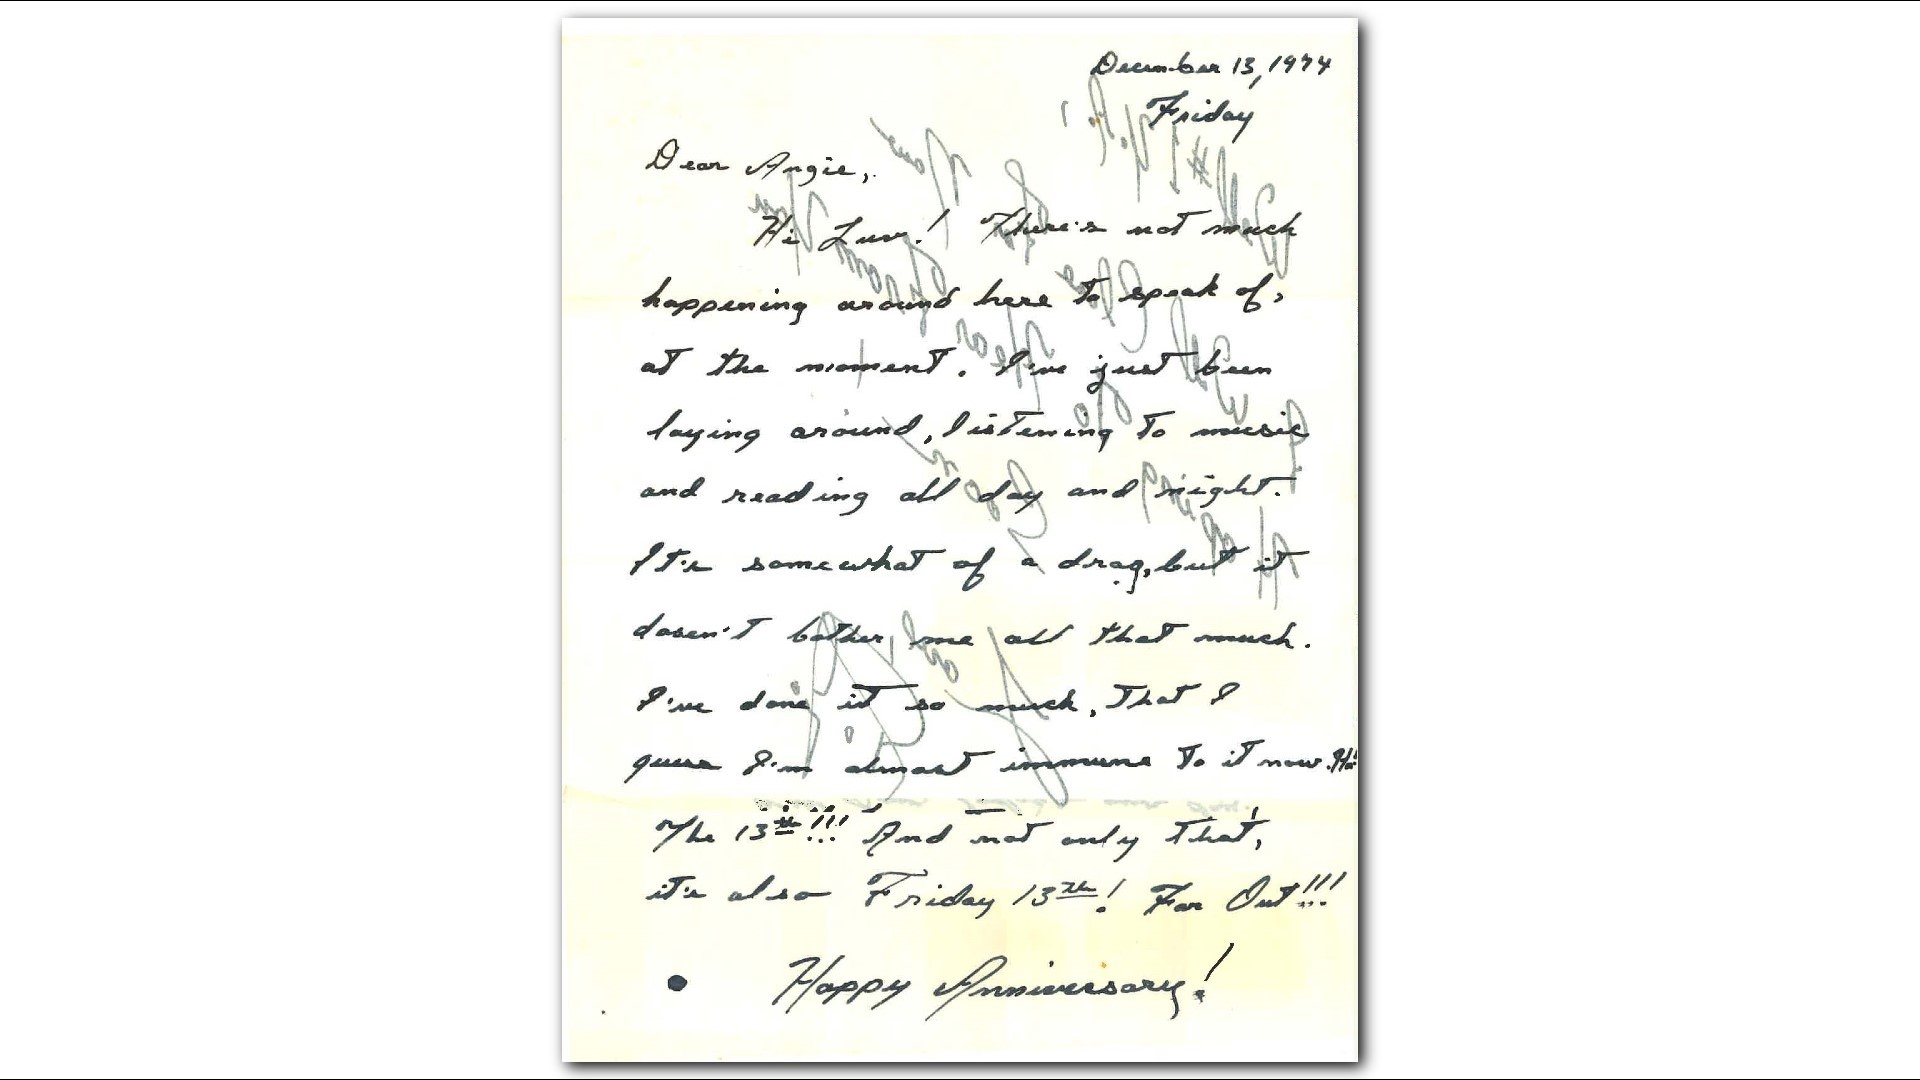 December 13, 1974
Friday
Dear Angie,
Hi Luv! There's not much
happening around here to speak of,
at the moment. I've just been
laying around, listening to music
and reading all day and night.
It's somewhat of a drag, but it
doesn't bother me all that much.
I've done it so much, that I
guess I'm almost immune to it now. Ha!
The 13th!!! And not only that,
it's also Friday 13th! Far Out!!!
Happy Anniversary!